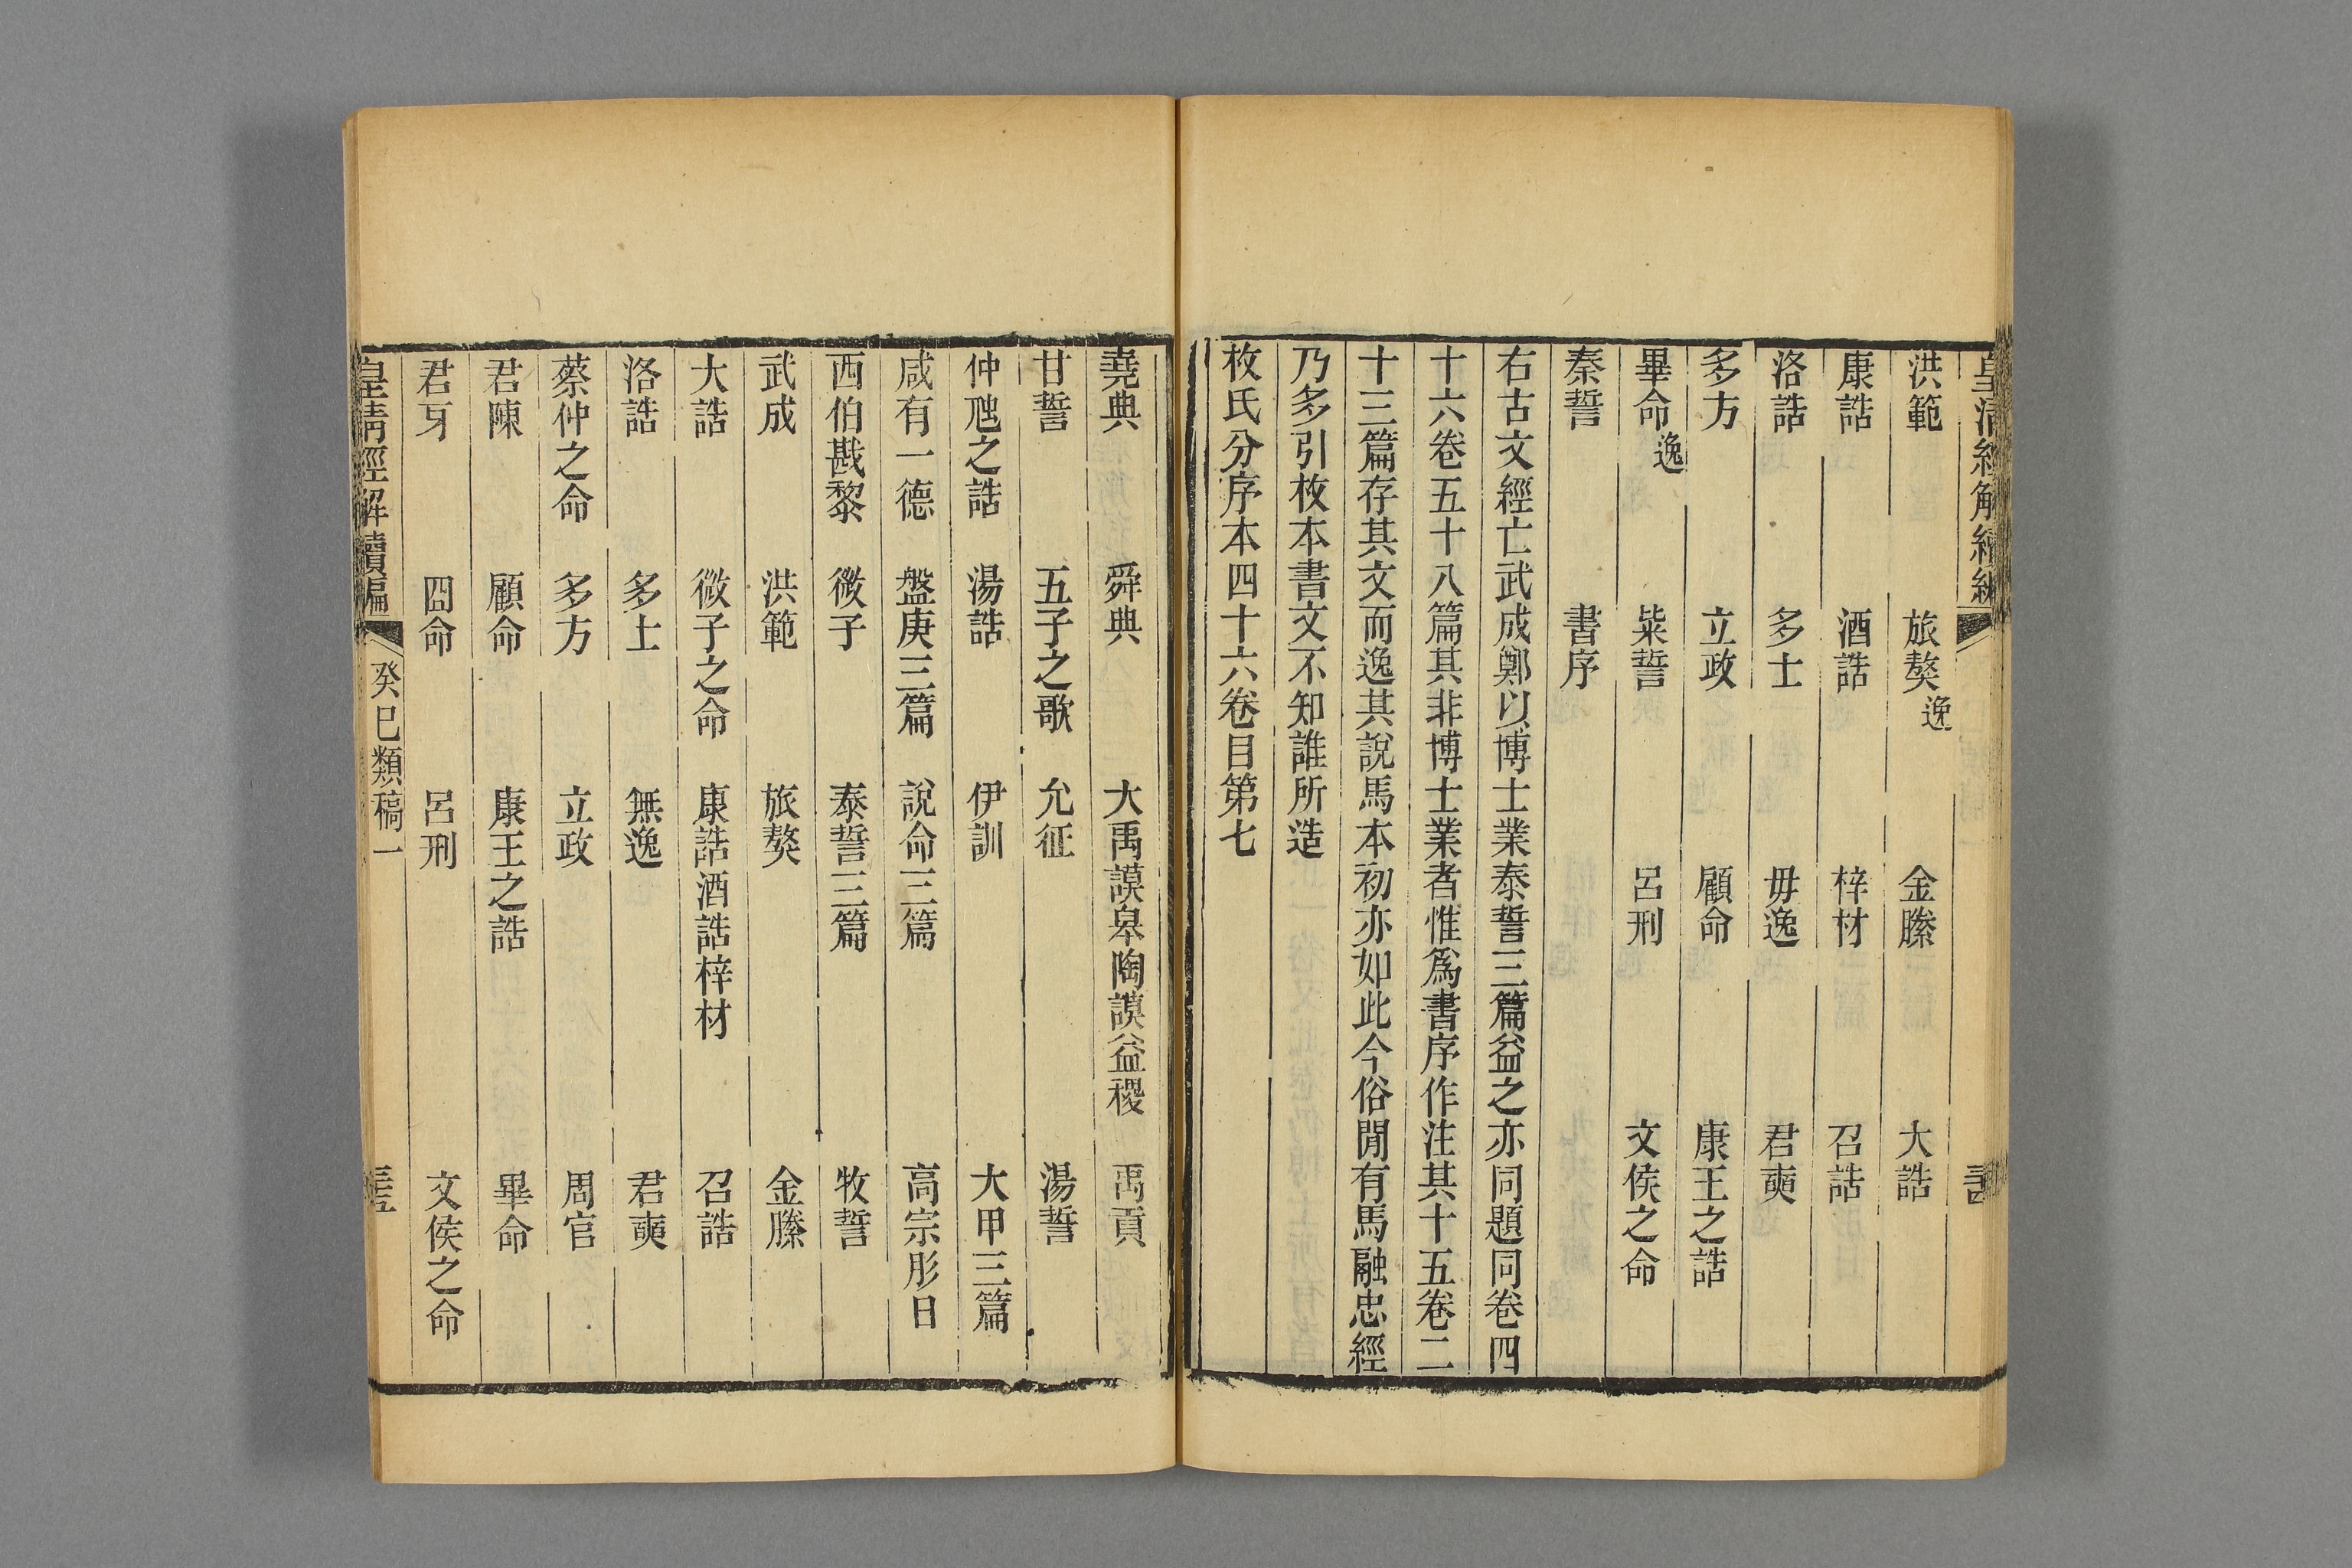 皇清經解續編
洪範 旅獒逸 金縢 大誥
康誥 酒誥 梓材 召誥
洛誥 多士 毋逸 君奭
多方 立政 顧命 康王之誥
畢命逸 粊誓 呂刑 文侯之命
秦誓 書序
右古文經亡武成鄭以博士業泰誓三篇益之亦同題同卷四
十六卷五十八篇其非博士業者惟爲書序作注其十五卷二
十三篇存其文而逸其說馬本初亦如此今俗閒有馬融忠經
乃多引枚本書文不知誰所造
枚氏分序本四十六卷目第七
堯典 舜典 大禹謨皋陶謨益稷 禹貢
甘誓 五子之歌 允征 湯誓
仲虺之誥 湯誥 伊訓 大甲三篇
咸有一德 盤庚三篇 說命三篇 高宗肜日
西伯戡黎 微子 泰誓三篇 牧誓
武成 洪範 旅獒 金縢
大誥 微子之命 康誥酒誥梓材 召誥
洛誥 多士 無逸 君奭
蔡仲之命 多方 立政 周官
君陳 顧命 康王之誥 畢命
君牙 囧命 呂刑 文侯之命
皇清經解續編 癸巳類稿一